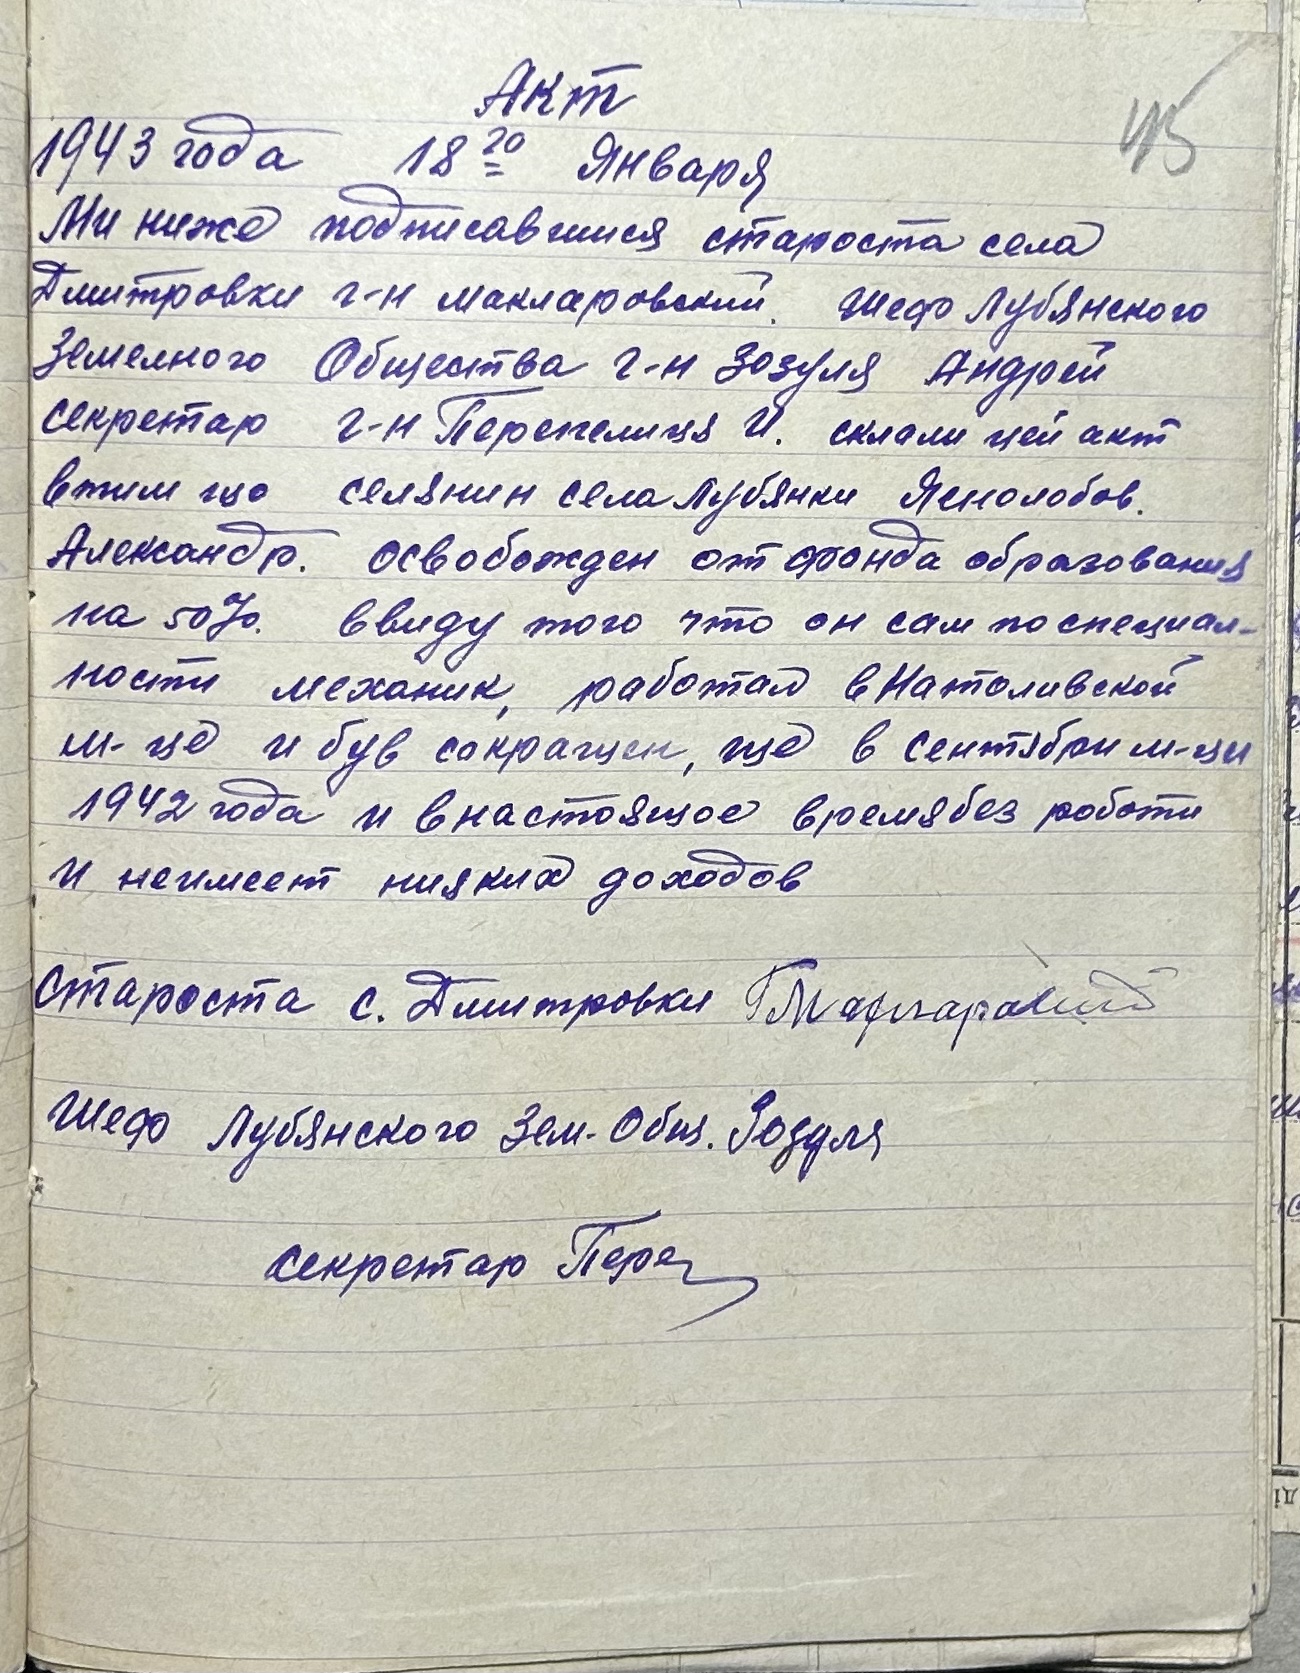 Акт
45
1943 года 18го Января
Ми ниже подписавшися староста села
Дмитровки г-н Макларовский. Шеф Лубянского
Земелного Общества г-н Зозуля Андрей
секретар г-н Перепелиця И. склали цей акт
втим що селянин села Лубянки Яснолобов.
Александр. освобожден от фонда образования
на 50%. ввиду того что он сам по специал-
ности механик, работал в Натоливской
м-це и був сокращен, ще в сентябри м-ци
1942 года и внастоящое время без роботи
и неимеет нияких доходов
Староста с. Дмитровки
Шеф Лубянского Зем-Общ. Зозуля
секретар Пере